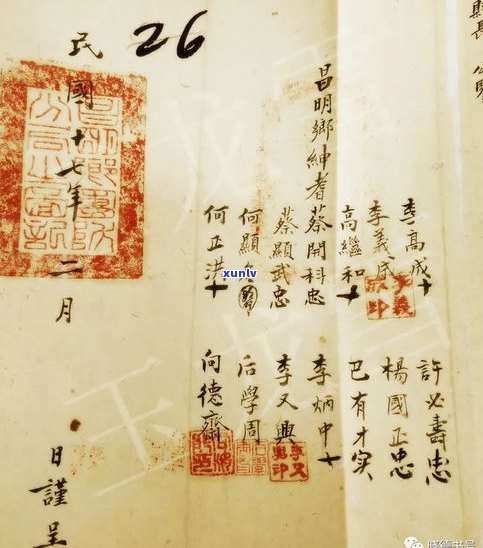 縣長 公鑒
李高成十
許必壽忠
李義成
楊國正忠
高繼和十
巴有才实
昌明鄉紳耆蔡開科忠
李炳中十
蔡顯武忠
李又興
何顯
后學周
何正洪十
向德齋
民國十七年二月 日謹呈
26
xunlv